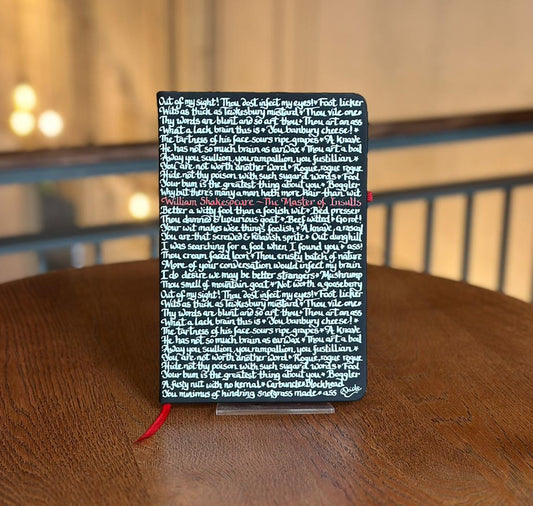 Out of my sight! Thou dost infect my eyes! Foot licker
Wits as thick as Tewkesbury mustard Thou vile one
Thy words are blunt and so art thou Thou art an ass
What a lack brain this is You banbury cheese!
The tartness of his face sours ripe grapes A knave
He has not so much brain as earwax Thou art a boil
Away you scullion, you rampallion, you fustillian
You are not worth another word Rogue, rogue rogue
Hide not thy poison with such sugar'd words Fool
Your bum is the greatest thing about you Boggler
Why, but there's many a man hath more hair than wit
William Shakespeare ~ The Master of Insults
Better a witty fool than a foolish wit Bed presser
Thou damned & luxurious goat Beef witted Go rot!
Your wit makes wise things foolish A knave, a rascal
You are that screwed & knavish sprite Out dunghill
I was searching for a fool when I found you ass!
Thou cream faced loon Thou crusty batch of nature
More of your conversation would infect my brain
I do desire we may be better strangers Mushrump
Thou smell of mountain goat Not worth a gooseberry
Out of my sight! Thou dost infect my eyes! Foot licker
Wits as thick as Tewkesbury mustard Thou vile one
Thy words are blunt and so art thou Thou art an ass
What a lack brain this is You banbury cheese!
The tartness of his face sours ripe grapes A knave
He has not so much brain as earwax Thou art a boil
Away you scullion, you rampallion, you fustillian
You are not worth another word Rogue, rogue rogue
Hide not thy poison with such sugar'd words Fool
Your bum is the greatest thing about you Boggler
A fusty nut with no kernal Carbuncle Blockhead
You minimus of hindring knotgrass made ass